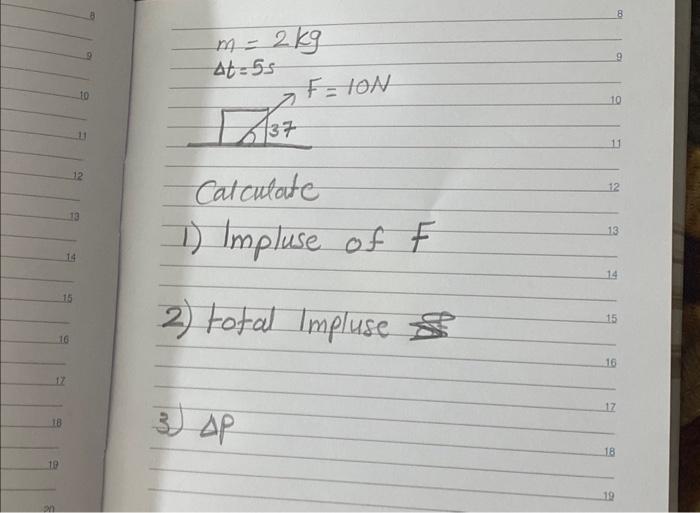 8
9
10
11
12
13
14
15
16
17
18
19
20
m = 2kg
Δt = 5s
F = 10N
37
Calculate
1) Impluse of F
2) total Impluse
3) ΔP
8
9
10
11
12
13
14
15
16
17
18
19